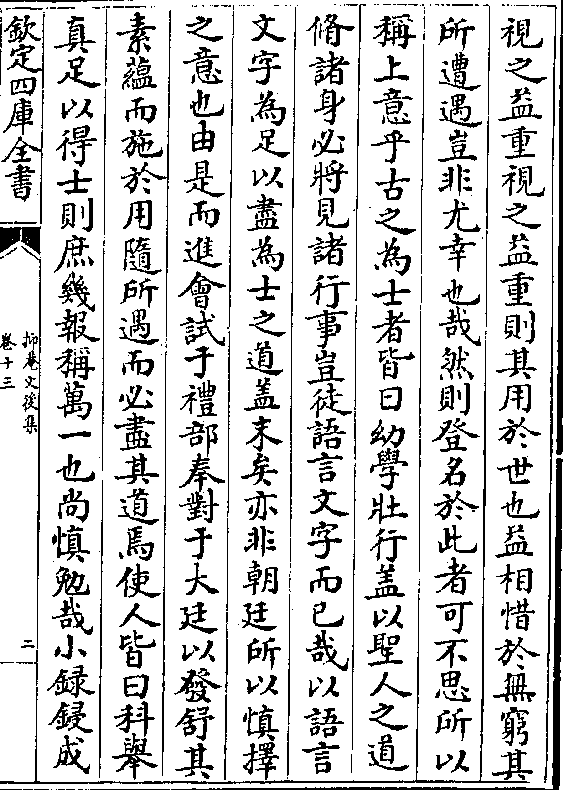 視之益重視之益重則其用於世也益相惜於無窮其
所遭遇豈非尤幸也哉然則登名於此者可不思所以
稱上意乎古之為士者皆曰幼學壯行盖以聖人之道
脩諸身必將見諸行事豈徒語言文字而已哉以語言
文字為足以盡為士之道盖末矣亦非朝廷所以慎擇
之意也由是而進會試于禮部奉對于大廷以發舒其
素蘊而施於用隨所遇而必盡其道焉使人皆曰科舉
真足以得士則庶幾報稱萬一也尚慎勉哉小録鋟成
欽定四庫全書
抑菴文後集
卷十三
二